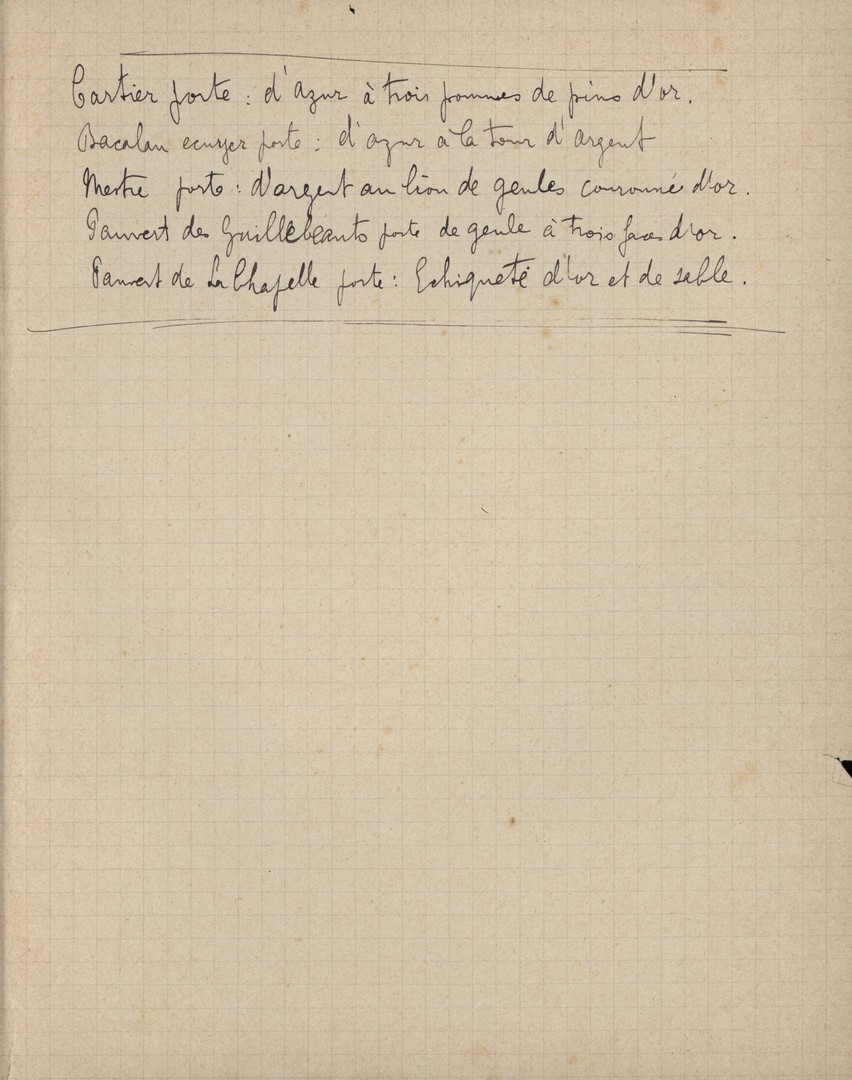 Cartier porte : d'azur à trois pommes de pins d'or.
Bacalan ecuyer porte : d'azur a la tour d'argent
Mestre porte : d'argent au lion de geules couronné d'or.
Pauvert des Guillebeauts porte de geule à trois faces d'or.
Pauvert de La Chapelle porte : Echiqueté d'or et de sable.